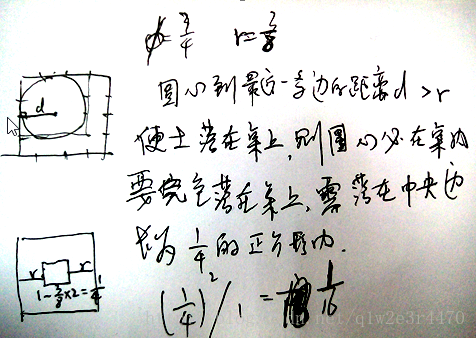 φ=3/4 r=3/8
圆心到最近一条边的距离d>r
使士落在桌上,则圆心必在桌内
要完全落在桌上,需落在中央边
长为 1/4 的正方形内.
(1/4)²/1 = 1/16
d
r r
1-3/8×2=1/4